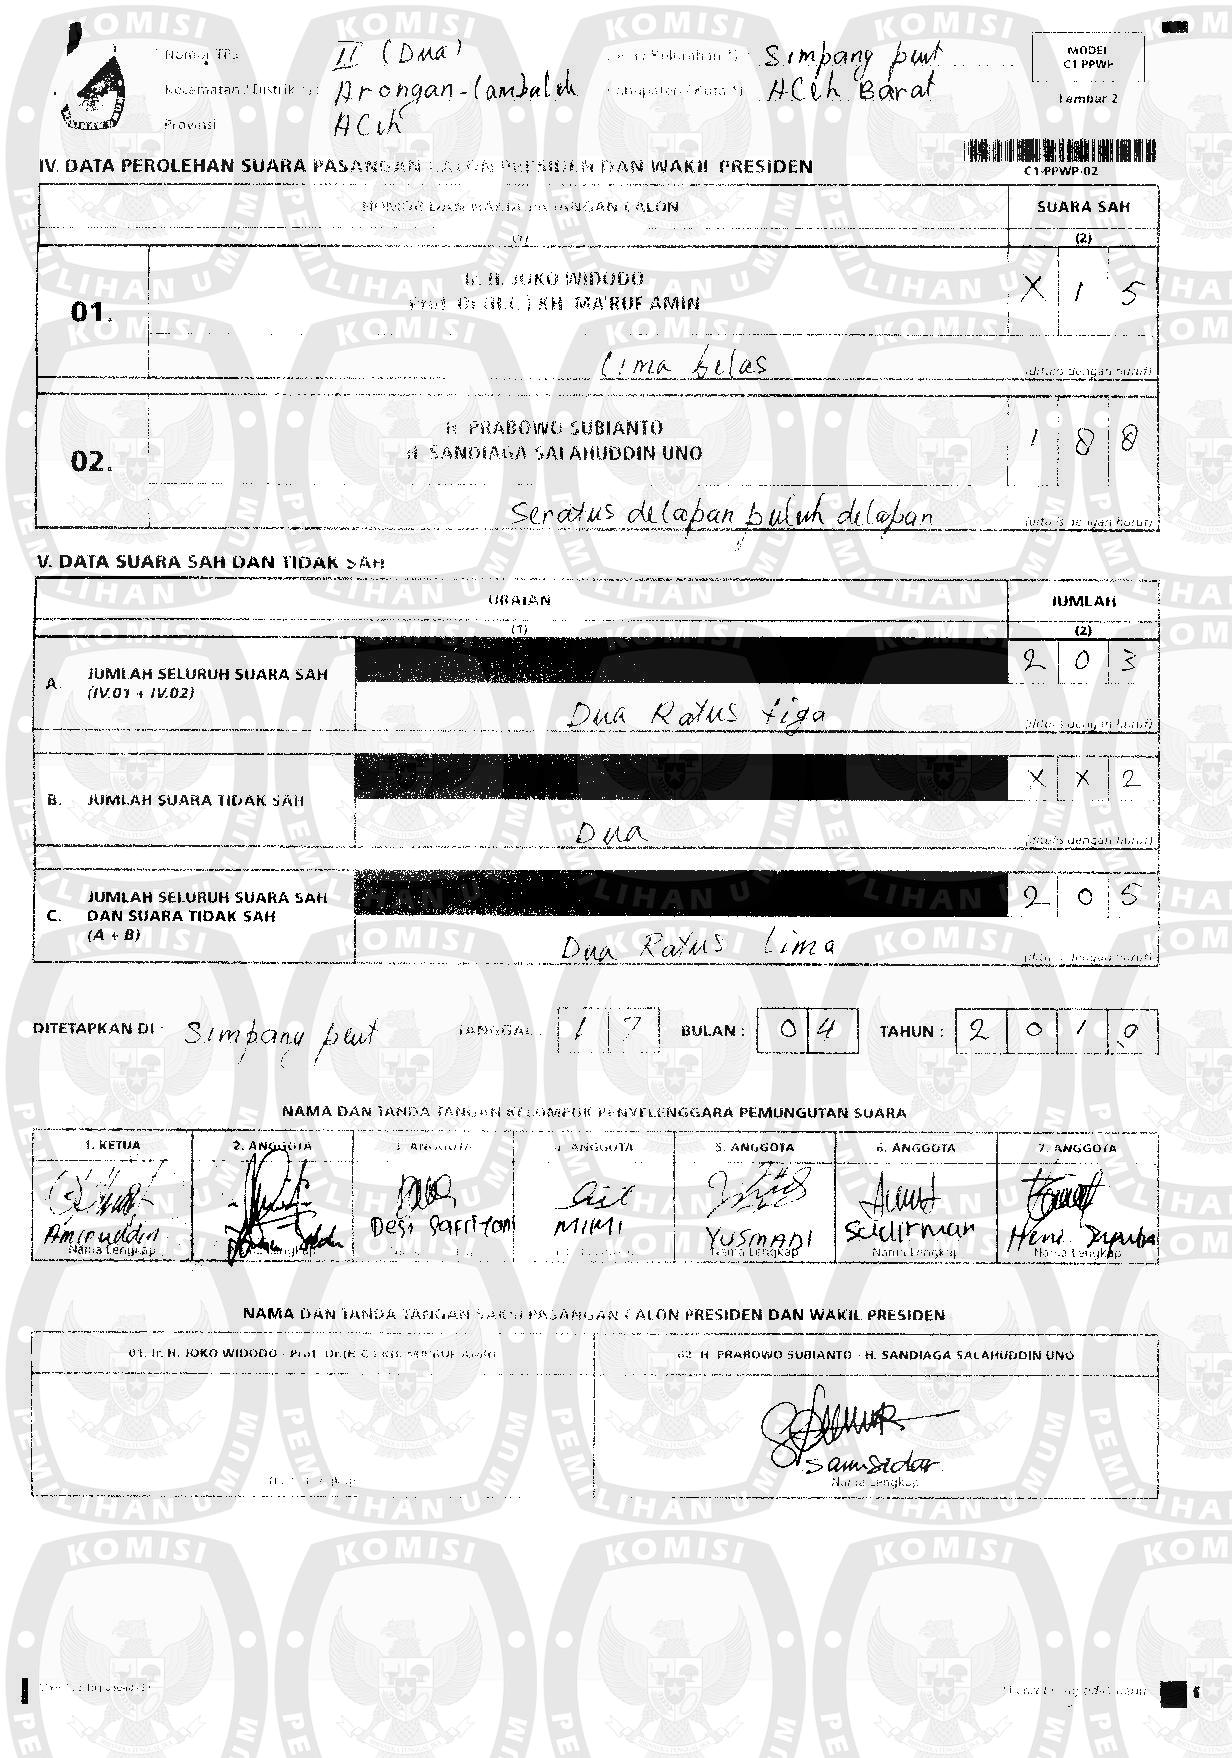 Nomor TPS II (Dua) Simpang peut MODEL
C1 PPWP
Kecamatan / Distrik Arongan-Lambalek ACeh Barat
Lembar 2
Provinsi ACeh
IV. DATA PEROLEHAN SUARA PASANGAN CALON PRESIDEN DAN WAKIL PRESIDEN
C1-PPWP-02
NOMOR DAN NAMA PASANGAN CALON SUARA SAH
(1) (2)
Ir. H. JOKO WIDODO
01. Prof. Dr. (H.C.) KH. MA'RUF AMIN X 1 5
Lima belas (ditulis dengan huruf)
H. PRABOWO SUBIANTO
02. H. SANDIAGA SALAHUDDIN UNO 1 8 8
Seratus delapan puluh delapan (ditulis dengan huruf)
V. DATA SUARA SAH DAN TIDAK SAH
URAIAN JUMLAH
(1) (2)
A. JUMLAH SELURUH SUARA SAH 2 0 3
(IV.01 + IV.02)
Dua Ratus tiga (ditulis dengan huruf)
B. JUMLAH SUARA TIDAK SAH X X 2
Dua (ditulis dengan huruf)
JUMLAH SELURUH SUARA SAH 2 0 5
C. DAN SUARA TIDAK SAH
(A + B)
Dua Ratus Lima (ditulis dengan huruf)
DITETAPKAN DI : Simpang peut TANGGAL : 1 7 BULAN : 04 TAHUN : 2 0 1 9
NAMA DAN TANDA TANGAN KELOMPOK PENYELENGGARA PEMUNGUTAN SUARA
1. KETUA 2. ANGGOTA 3. ANGGOTA 4. ANGGOTA 5. ANGGOTA 6. ANGGOTA 7. ANGGOTA
Amiruddin Desi MIMI YUSMADI Sudirman
Nama Lengkap Nama Lengkap Nama Lengkap Nama Lengkap
NAMA DAN TANDA TANGAN SAKSI PASANGAN CALON PRESIDEN DAN WAKIL PRESIDEN
01. Ir. H. JOKO WIDODO - Prof. Dr. (H.C.) KH. MA'RUF AMIN 02. H. PRABOWO SUBIANTO - H. SANDIAGA SALAHUDDIN UNO
Samsidar
Nama Lengkap